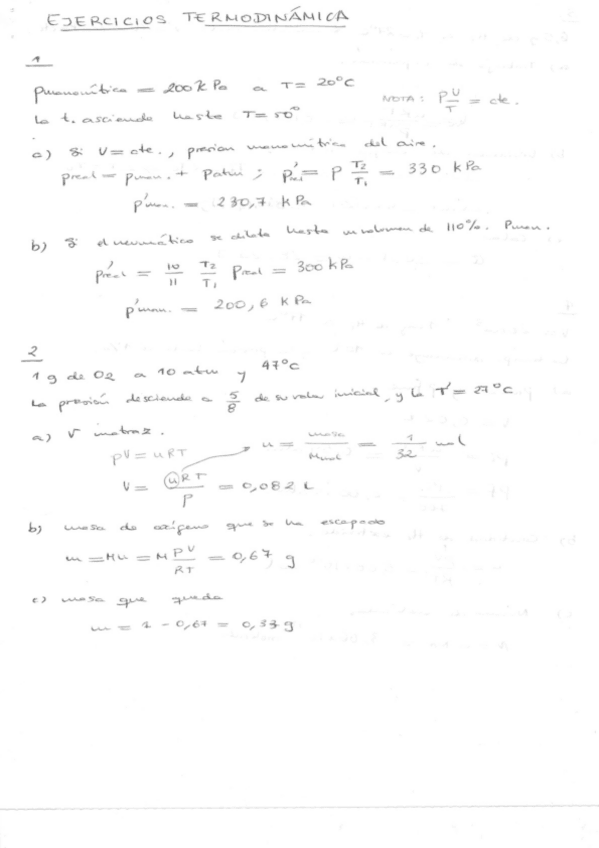 EJERCICIOS TERMODINÁMICA
1
Pmanométrica = 200 k Pa a T = 20°C
NOTA: P V/T = cte.
La t. asciende hasta T = 50°
a) Si V = cte., presion manométrica del aire.
Preal = Pman. + Patm ; P'real = P T2/T1 = 330 k Pa
P'man. = 230,7 k Pa
b) Si el neumático se dilata hasta un volumen de 110%. Pman.
P'real = 10/11 T2/T1 Preal = 300 k Pa
P'man. = 200,6 k Pa
2
1 g de O2 a 10 atm y 47°C
La presión desciende a 5/8 de su valor inicial, y la T' = 27°C
a) V matraz.
PV = nRT
n = masa/Mmol = 1/32 mol
V = nRT/P = 0,082 L
b) masa de oxígeno que se ha escapado
m = Mn = M PV/RT = 0,67 g
c) masa que queda
m = 1 - 0,67 = 0,33 g